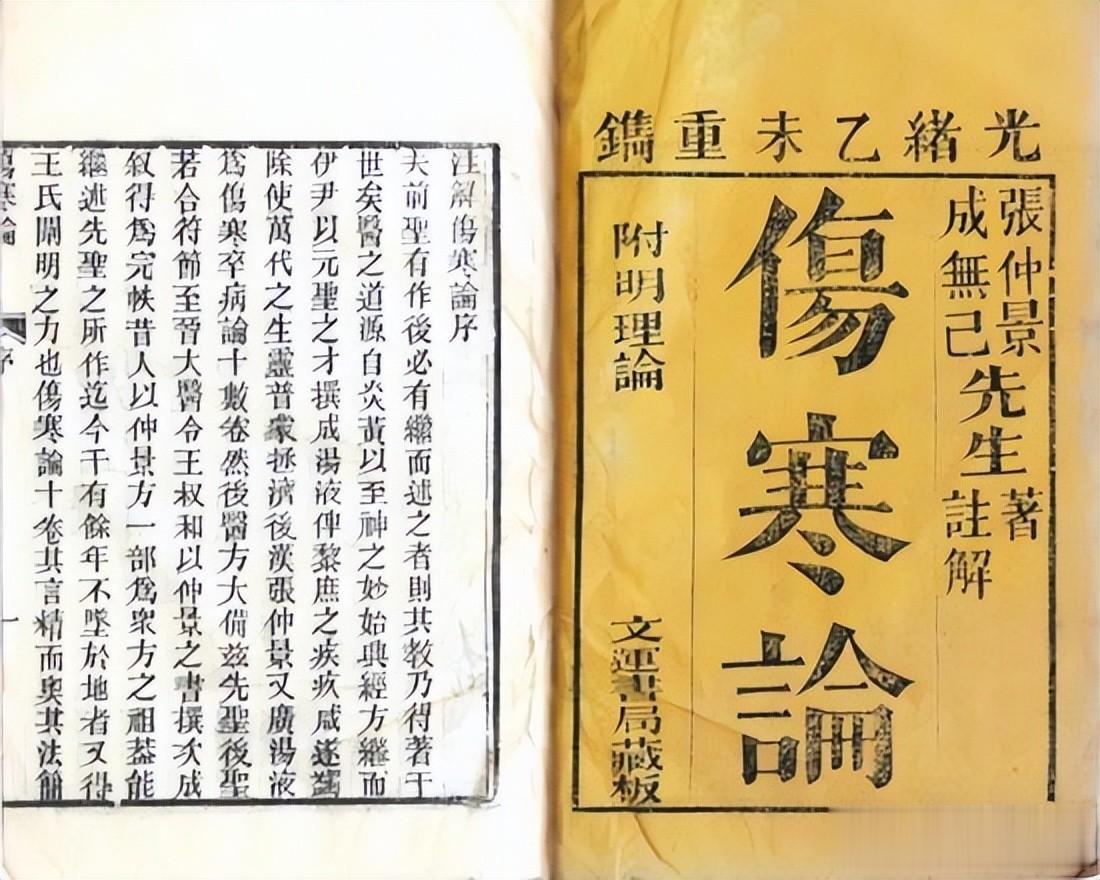 光緒乙未重鐫
張仲景先生著
成無己註解
傷寒論
附明理論
文運書局藏板
注解傷寒論序
夫前聖有作後必有繼而述之者則其教乃得著于
世矣醫之道源自炎黃以至神之妙始興經方繼而
伊尹以元聖之才撰成湯液俾黎庶之疾疢咸遂蠲
除使萬代之生靈普衆拯濟後漢張仲景又廣湯液
爲傷寒卒病論十數卷然後醫方大備兹先聖後聖
若合符節至晉大醫令王叔和以仲景之書撰次成
叙得爲完帙昔人以仲景方一部爲衆方之祖葢能
繼述先聖之所作迄今千有餘年不墜於地者又得
王氏闡明之力也傷寒論十卷其言精而奥其法簡
傷寒論
序
一